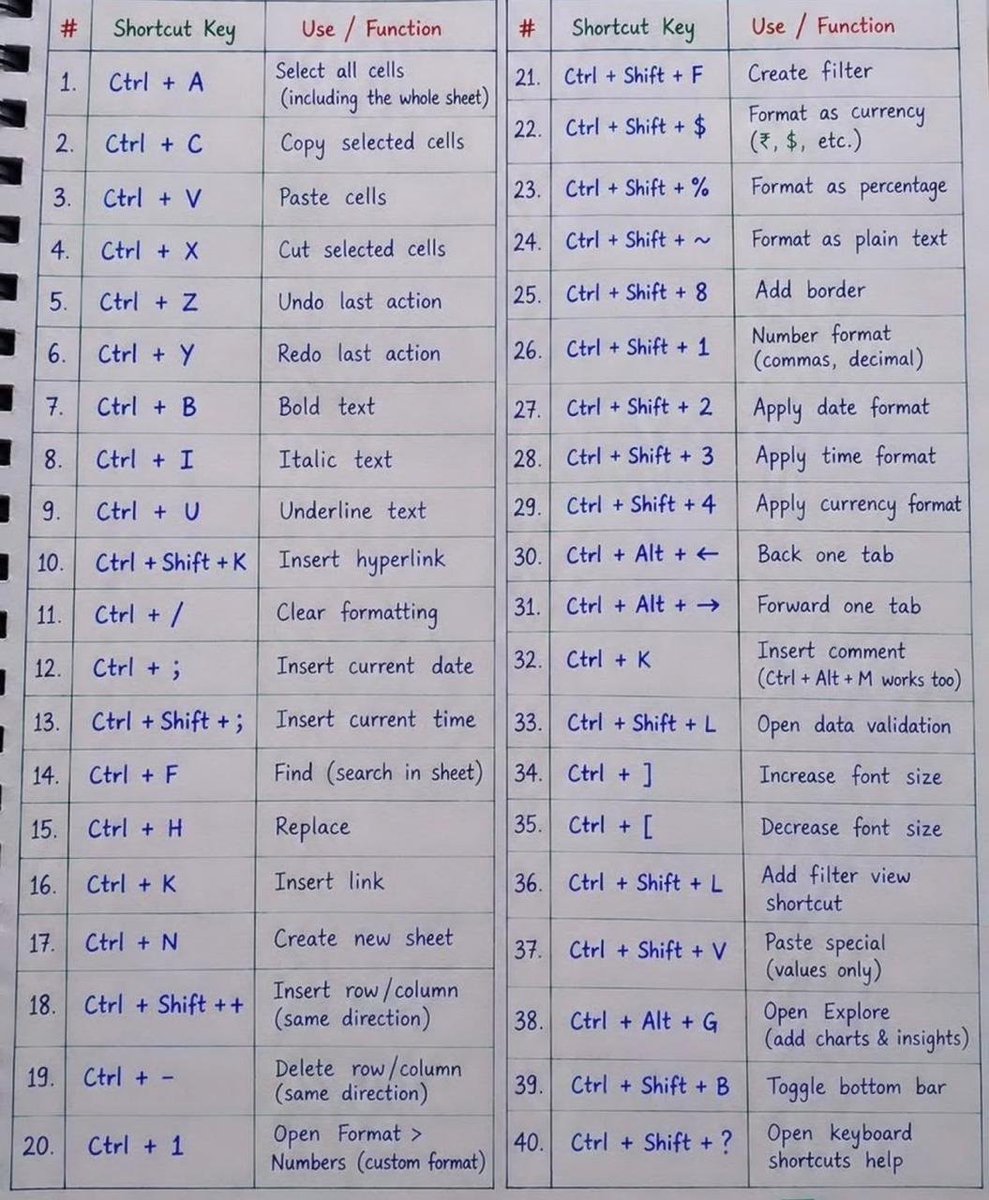 # Shortcut Key Use / Function
1. Ctrl + A Select all cells
(including the whole sheet)
2. Ctrl + C Copy selected cells
3. Ctrl + V Paste cells
4. Ctrl + X Cut selected cells
5. Ctrl + Z Undo last action
6. Ctrl + Y Redo last action
7. Ctrl + B Bold text
8. Ctrl + I Italic text
9. Ctrl + U Underline text
10. Ctrl + Shift + K Insert hyperlink
11. Ctrl + / Clear formatting
12. Ctrl + ; Insert current date
13. Ctrl + Shift + ; Insert current time
14. Ctrl + F Find (search in sheet)
15. Ctrl + H Replace
16. Ctrl + K Insert link
17. Ctrl + N Create new sheet
18. Ctrl + Shift ++ Insert row/column
(same direction)
19. Ctrl + - Delete row/column
(same direction)
20. Ctrl + 1 Open Format >
Numbers (custom format)
# Shortcut Key Use / Function
21. Ctrl + Shift + F Create filter
22. Ctrl + Shift + $ Format as currency
(₹, $, etc.)
23. Ctrl + Shift + % Format as percentage
24. Ctrl + Shift + ~ Format as plain text
25. Ctrl + Shift + 8 Add border
26. Ctrl + Shift + 1 Number format
(commas, decimal)
27. Ctrl + Shift + 2 Apply date format
28. Ctrl + Shift + 3 Apply time format
29. Ctrl + Shift + 4 Apply currency format
30. Ctrl + Alt + ← Back one tab
31. Ctrl + Alt + → Forward one tab
32. Ctrl + K Insert comment
(Ctrl + Alt + M works too)
33. Ctrl + Shift + L Open data validation
34. Ctrl + ] Increase font size
35. Ctrl + [ Decrease font size
36. Ctrl + Shift + L Add filter view
shortcut
37. Ctrl + Shift + V Paste special
(values only)
38. Ctrl + Alt + G Open Explore
(add charts & insights)
39. Ctrl + Shift + B Toggle bottom bar
40. Ctrl + Shift + ? Open keyboard
shortcuts help